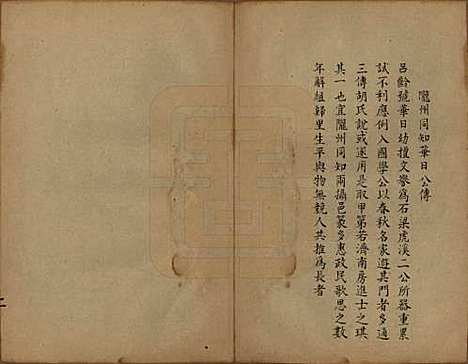 隴州同知華日公傳
呂齡號華日幼擅文譽為石梁虎溪二公所器重累
試不利應例入國學公以春秋名家遊其門者多通
三傳胡氏說或遂用是取甲第若濟南房進士之琪
其一也宜隴州同知兩攝邑篆多惠政民歌思之數
年解組歸里生平與物無競人共推為長者